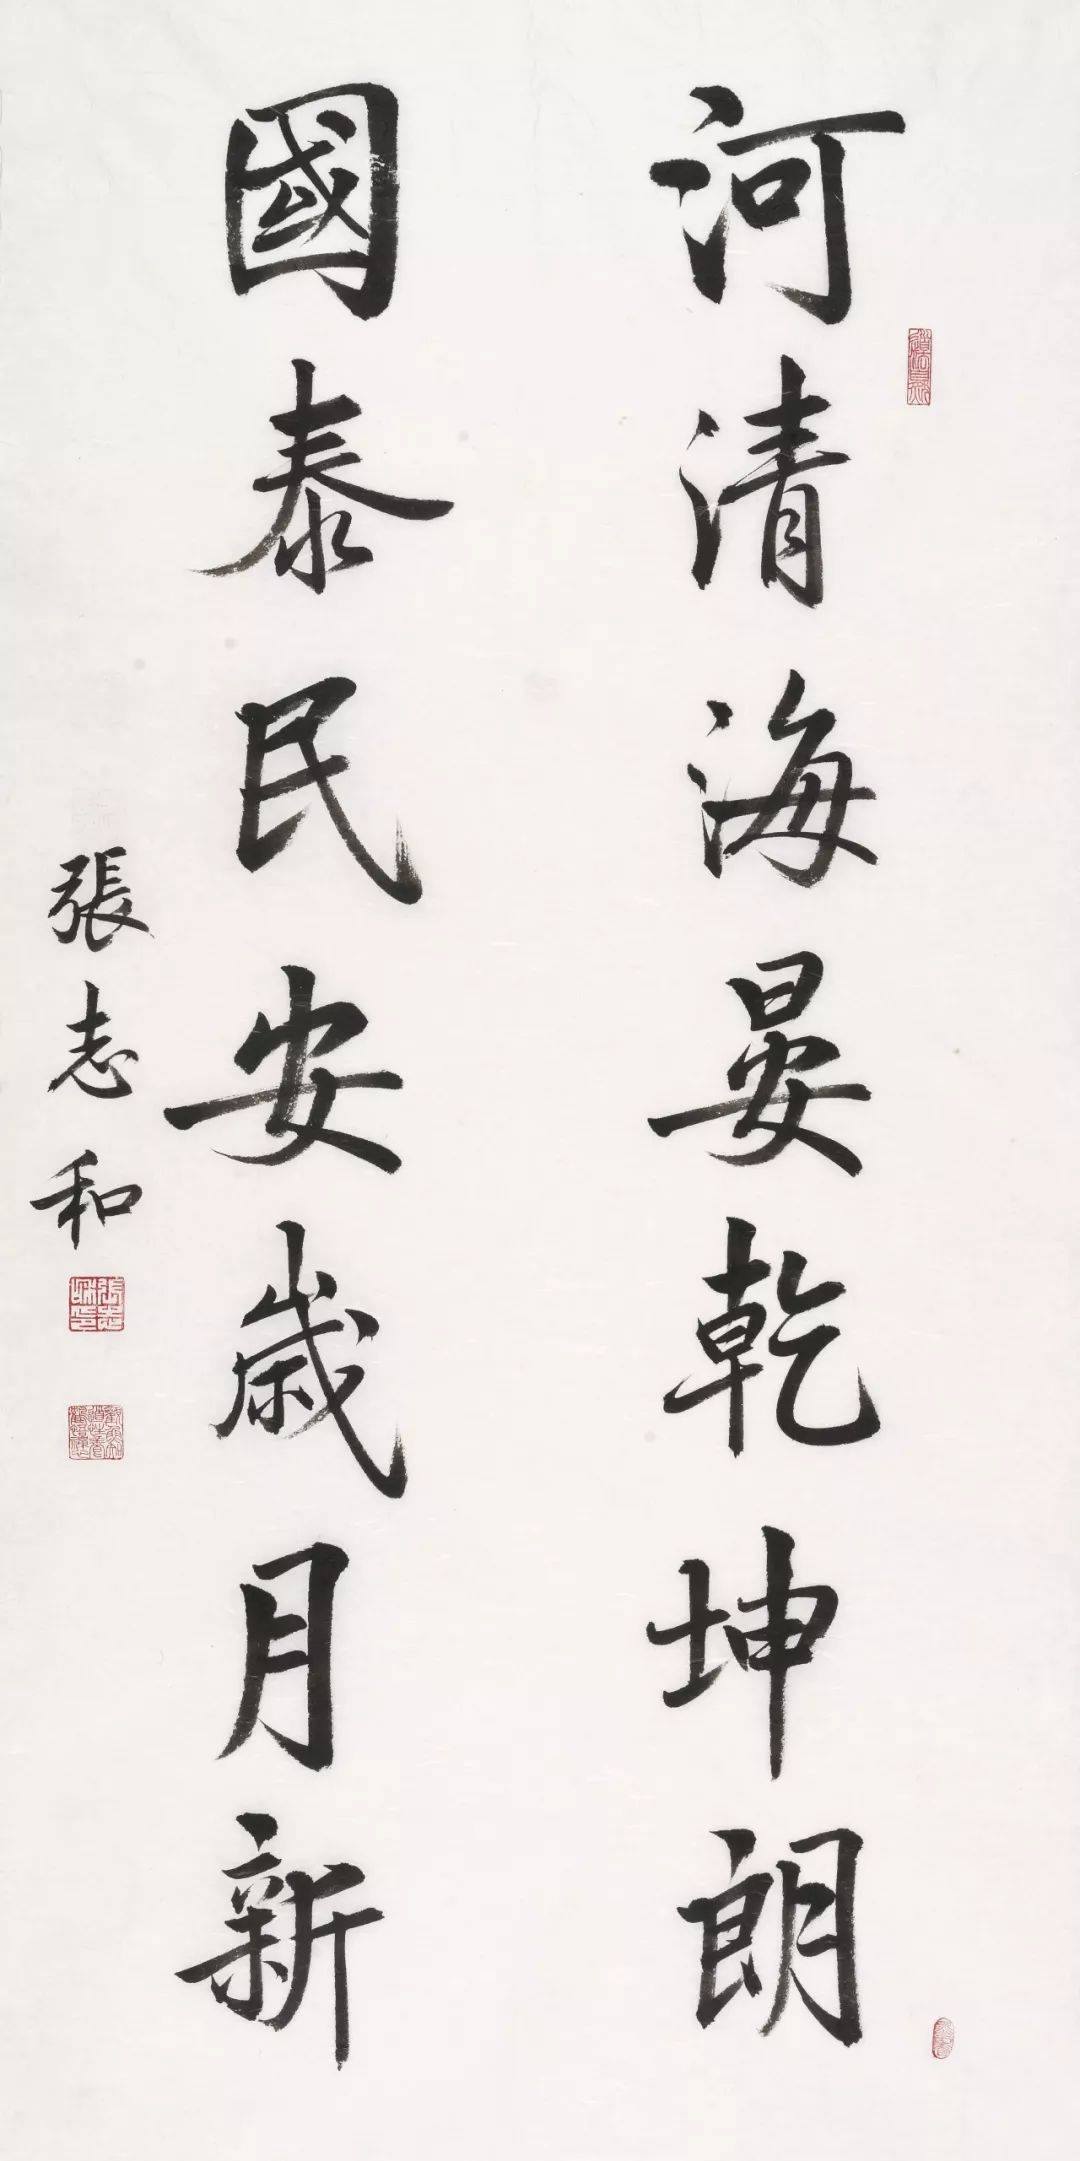 河清海晏乾坤朗
國泰民安歲月新
張志和